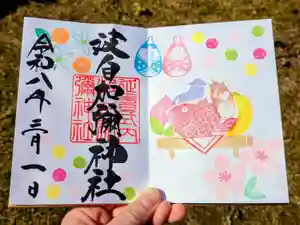 波自加彌神社
延喜式内
彌神社
令和八年三月一日